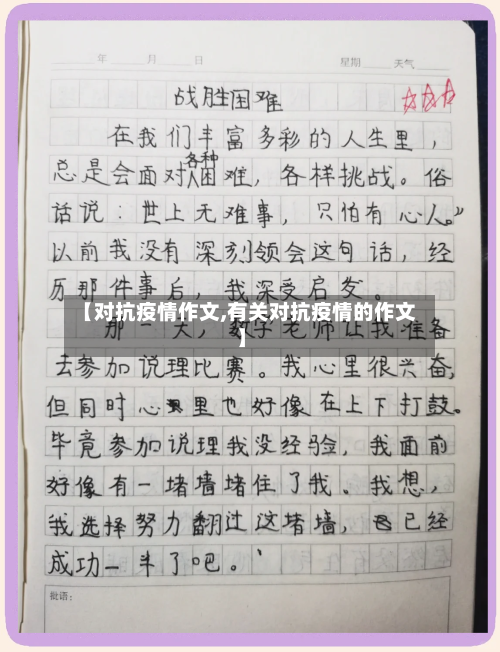 年 月 日 星期 天气
战胜困难
在我们丰富多彩的人生里，
总是会面对各种困难，各样挑战。俗
话说：世上无难事，只怕有心人。”
以前我没有深刻领会这句话，经
历那件事后，我深受启发
【对抗疫情作文,有关对抗疫情的作文
】
那一天，数学老师让我准备
去参加说理比赛。我心里很兴奋，
但同时心里也好像在上下打鼓。
毕竟参加说理我没经验，我面前
好像有一堵墙堵住了我。我想，
我选择努力翻过这堵墙，已经
成功一半了吧。
批语：